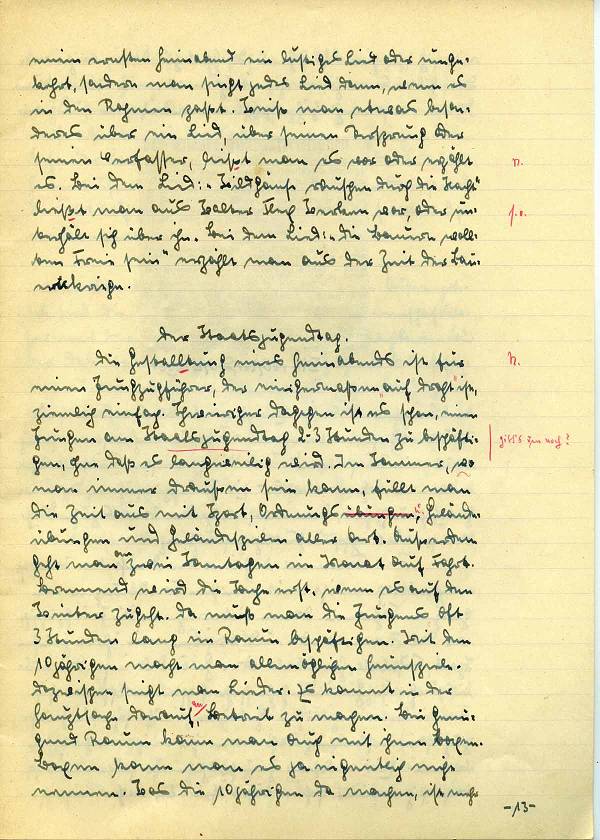 einem ernsten Heimabend ein lustiges Lied oder umge-
kehrt, sondern man singt jedes Lied dann, wenn es
in den Rahmen passt. Weiß man etwas beson-
deres über ein Lied, über seinen Ursprung oder
seinen Verfasser, liest man es vor oder erzählt
es. Bei dem Lied: „Wildgänse rauschen durch die Nacht"
n.
liest man aus Walter Flex Werken vor, oder un-
s.o.
terhält sich über ihn. Bei dem Lied: „Die Bauern woll-
ten Freie sein" erzählt man aus der Zeit der Bau-
ernkriege.
Der Staatsjugendtag.
Die Gestalltung eines Heimabends ist für
n.
einen Jungzugführer, der einigermaßen „auf Draht" ist,
ziemlich einfach. Schwieriger dagegen ist es schon, einen
Jungen am Staatsjugendtag 2-3 Stunden zu beschäfti-
gibt's den noch?
gen, ohne daß es langweilig wird. Im Sommer, wo
man immer draußen sein kann, füllt man
die Zeit aus mit Sport, Ordnungsübungen, Gelände-
übungen und Geländespielen aller Art. Außerdem
geht man an zwei Sonntagen im Monat auf Fahrt.
Brennend wird die Sache erst, wenn es auf den
Winter zugeht. Da muß man die Jungens oft
3 Stunden lang im Raum beschäftigen. Mit den
10 jährigen macht man alle möglichen Heimspiele.
Dazwischen singt man Lieder. Es kommt in der
Hauptsache darauf an, Betrieb zu machen. Bei genü-
gend Raum kann man auch mit ihnen boxen.
Boxen kann man es ja eigentlich nicht
nennen. Was die 10 jährigen da machen, ist mehr
-13-